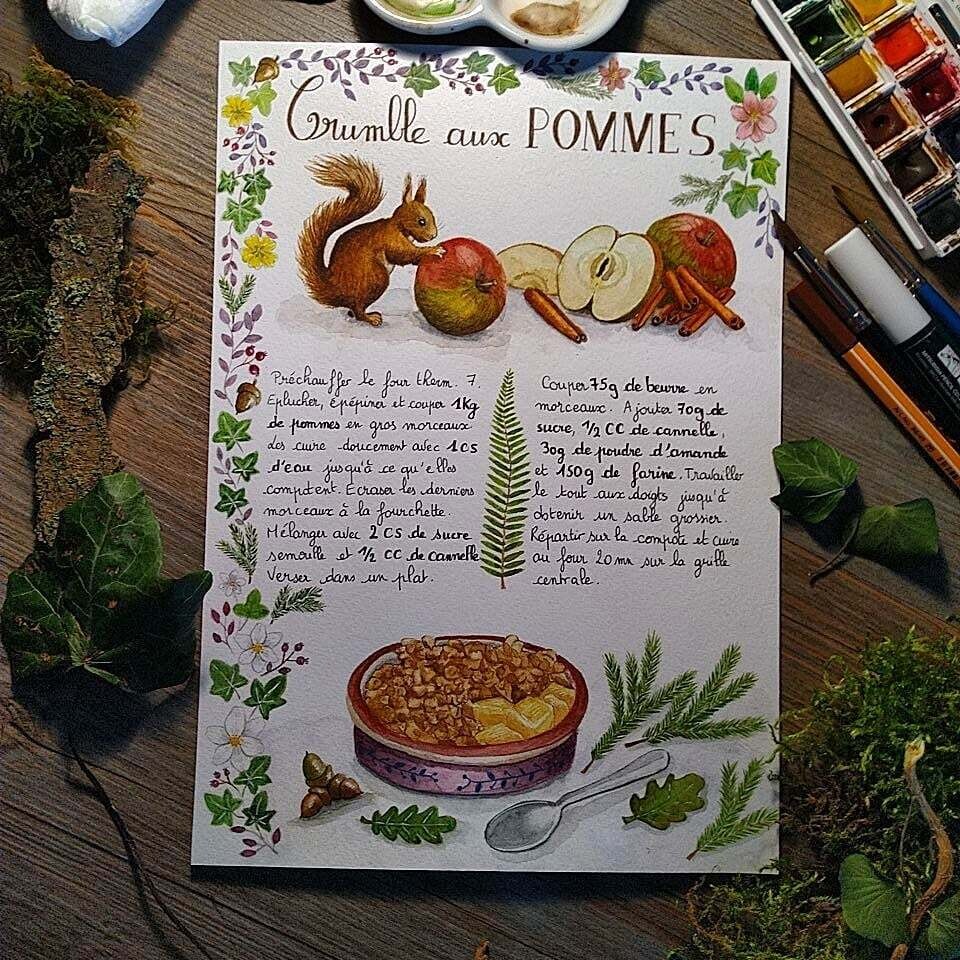 Crumble aux POMMES
Préchauffer le four therm. 7.
Eplucher, épépiner et couper 1Kg
de pommes en gros morceaux
Les cuire doucement avec 1 CS
d'eau jusqu'à ce qu'elles
compotent. Ecraser les derniers
morceaux à la fourchette.
Mélanger avec 2 CS de sucre
semoule et 1/2 CC de cannelle
Verser dans un plat.
Couper 75g de beurre en
morceaux. Ajouter 70g de
sucre, 1/2 CC de cannelle,
30g de poudre d'amande
et 150g de farine. Travailler
le tout aux doigts jusqu'à
obtenir un sable grossier.
Répartir sur la compote et cuire
au four 20mn sur la grille
centrale.